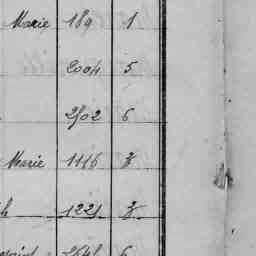 Marie 189 1
2004 5
2502 6
Marie 1116 3
h 1221 3
2648 6